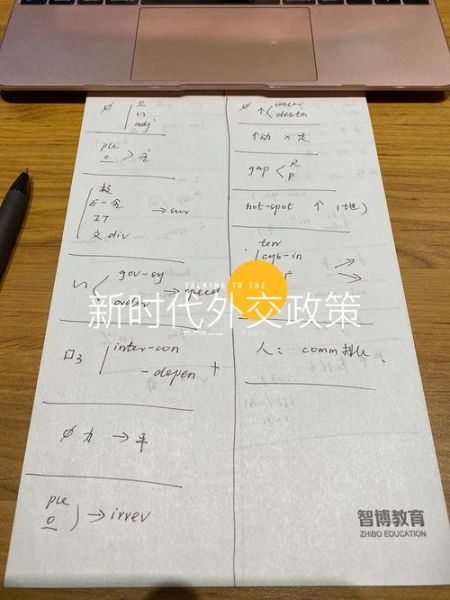 adj
ple
→ sur
IT
文 div
gov-sy
→ speed
order
口3
inter-con
-depen +
力 → 平
ple
→ irrev
uncer
desta
↑动 × 定
gap
R
P
hot-spot ↑ (地)
terr
cyb-in
人: comm
TALKING TO THE
新时代外交政策
智博教育
ZHIBO EDUCATION